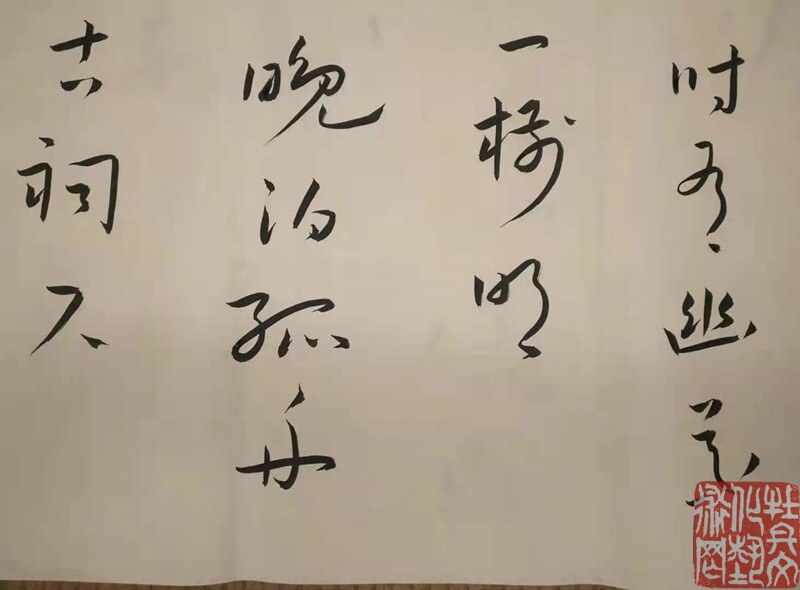 时有幽花
一樹明
晚泊孤舟
古祠下